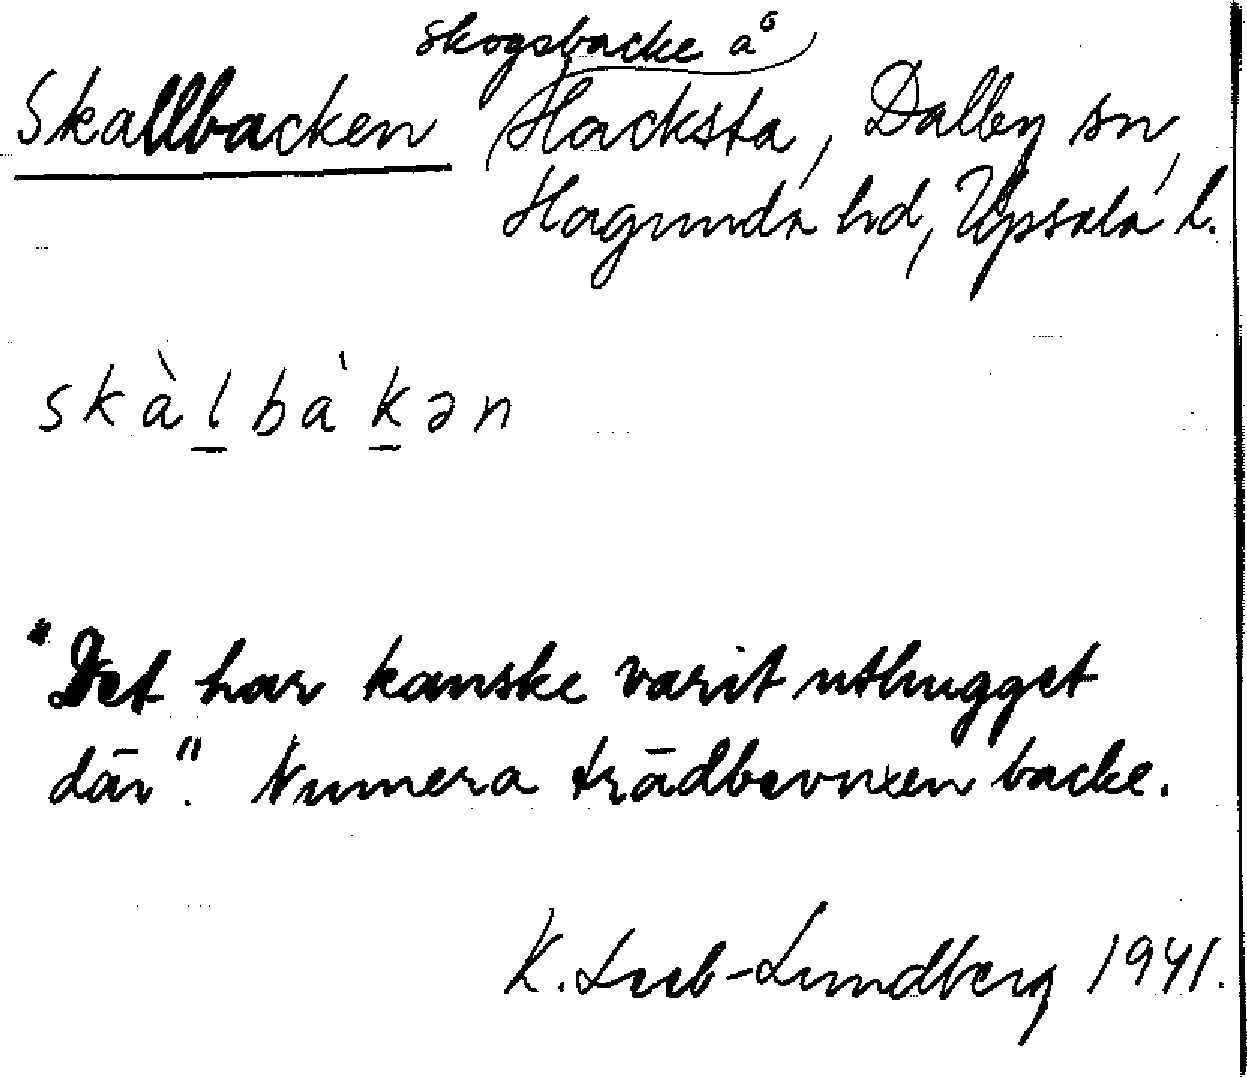 skogsbacke å
Skallbacken Hacksta, Dalby sn,
Hagunda hd, Upsala l.
skàl̲bàk̲ən
"Det har kanske varit uthugget
där". Numera trädbevuxen backe.
K. Leeb-Lundberg 1941.